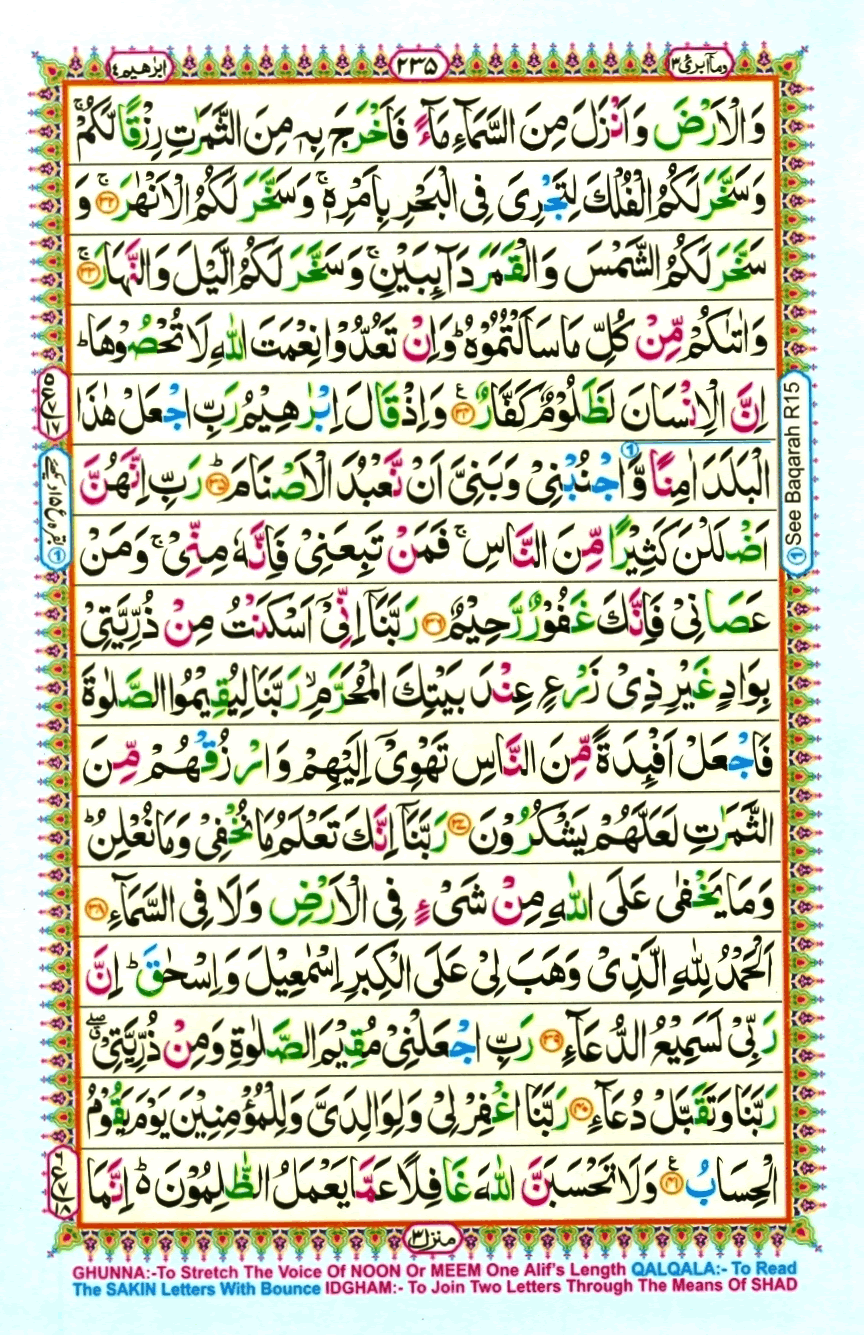 ابرٰهيم ١٤
٢٣٥
ومآ ابرئ ١٣
وَالْاَرْضَ وَاَنْزَلَ مِنَ السَّمَآءِ مَآءً فَاَخْرَجَ بِهٖ مِنَ الثَّمَرٰتِ رِزْقًا لَّكُمْ ۚ
وَسَخَّرَ لَكُمُ الْفُلْكَ لِتَجْرِىَ فِى الْبَحْرِ بِاَمْرِهٖ ۚ وَسَخَّرَ لَكُمُ الْاَنْهٰرَ ۚ ﴿٣٢﴾ وَ
سَخَّرَ لَكُمُ الشَّمْسَ وَالْقَمَرَ دَآئِبَيْنِ ۚ وَسَخَّرَ لَكُمُ الَّيْلَ وَالنَّهَارَ ۚ ﴿٣٣﴾
وَاٰتٰىكُمْ مِّنْ كُلِّ مَا سَاَلْتُمُوْهُ ؕ وَاِنْ تَعُدُّوْا نِعْمَتَ اللّٰهِ لَا تُحْصُوْهَا ؕ
اِنَّ الْاِنْسَانَ لَظَلُوْمٌ كَفَّارٌ ﴿٣٤﴾ ع وَاِذْ قَالَ اِبْرٰهِيْمُ رَبِّ اجْعَلْ هٰذَا
الْبَلَدَ اٰمِنًا وَّاجْنُبْنِىْ وَبَنِىَّ اَنْ نَّعْبُدَ الْاَصْنَامَ ؕ ﴿٣٥﴾ رَبِّ اِنَّهُنَّ
اَضْلَلْنَ كَثِيْرًا مِّنَ النَّاسِ ۚ فَمَنْ تَبِعَنِىْ فَاِنَّهٗ مِنِّىْ ۚ وَمَنْ
عَصَانِىْ فَاِنَّكَ غَفُوْرٌ رَّحِيْمٌ ﴿٣٦﴾ رَبَّنَآ اِنِّىْٓ اَسْكَنْتُ مِنْ ذُرِّيَّتِىْ
بِوَادٍ غَيْرِ ذِىْ زَرْعٍ عِنْدَ بَيْتِكَ الْمُحَرَّمِ ۙ رَبَّنَا لِيُقِيْمُوا الصَّلٰوةَ
فَاجْعَلْ اَفْئِدَةً مِّنَ النَّاسِ تَهْوِىْٓ اِلَيْهِمْ وَارْزُقْهُمْ مِّنَ
الثَّمَرٰتِ لَعَلَّهُمْ يَشْكُرُوْنَ ﴿٣٧﴾ رَبَّنَآ اِنَّكَ تَعْلَمُ مَا نُخْفِىْ وَمَا نُعْلِنُ ؕ
وَمَا يَخْفٰى عَلَى اللّٰهِ مِنْ شَىْءٍ فِى الْاَرْضِ وَلَا فِى السَّمَآءِ ﴿٣٨﴾
اَلْحَمْدُ لِلّٰهِ الَّذِىْ وَهَبَ لِىْ عَلَى الْكِبَرِ اِسْمٰعِيْلَ وَاِسْحٰقَ ؕ اِنَّ
رَبِّىْ لَسَمِيْعُ الدُّعَآءِ ﴿٣٩﴾ رَبِّ اجْعَلْنِىْ مُقِيْمَ الصَّلٰوةِ وَمِنْ ذُرِّيَّتِىْ ۖ
رَبَّنَا وَتَقَبَّلْ دُعَآءِ ﴿٤٠﴾ رَبَّنَا اغْفِرْ لِىْ وَلِوَالِدَىَّ وَلِلْمُؤْمِنِيْنَ يَوْمَ يَقُوْمُ
الْحِسَابُ ﴿٤١﴾ ع وَلَا تَحْسَبَنَّ اللّٰهَ غَافِلًا عَمَّا يَعْمَلُ الظّٰلِمُوْنَ ؕ اِنَّمَا
① See Baqarah R15
منزل ٣
GHUNNA:-To Stretch The Voice Of NOON Or MEEM One Alif's Length QALQALA:- To Read
The SAKIN Letters With Bounce IDGHAM:- To Join Two Letters Through The Means Of SHAD